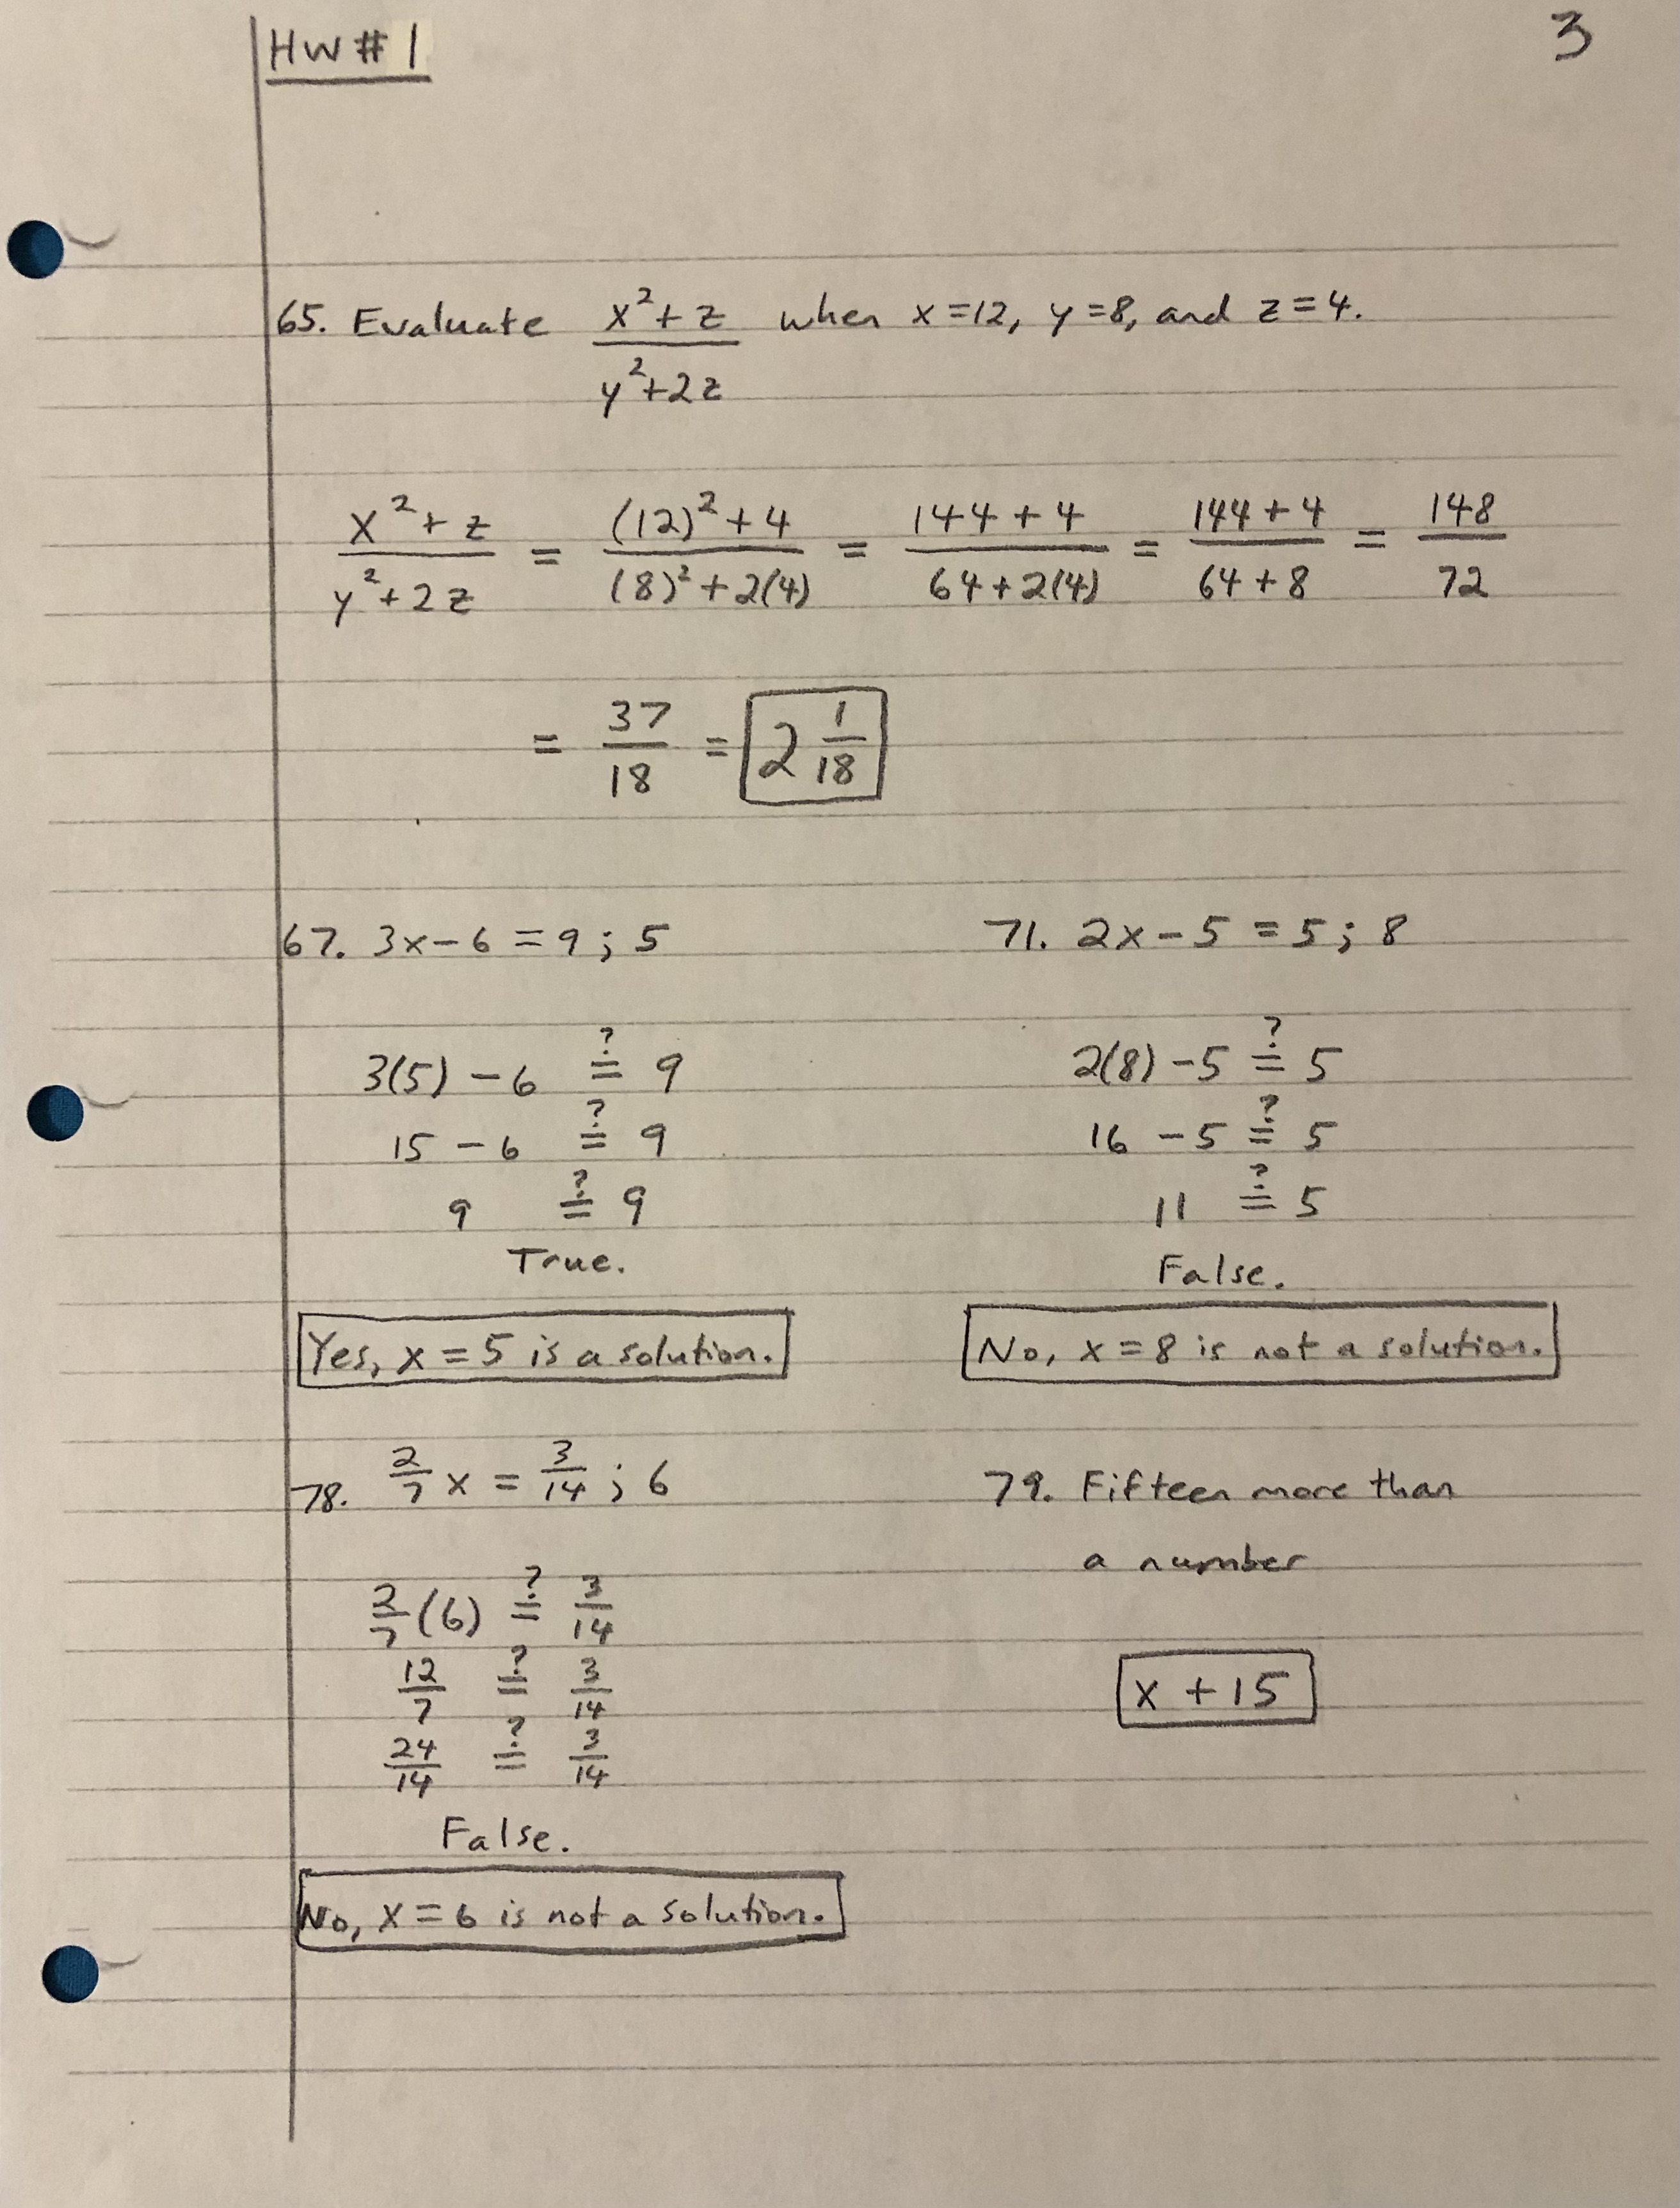 HW # 1
3
65. Evaluate (x² + z)/(y² + 2z) when x = 12, y = 8, and z = 4.
(x² + z)/(y² + 2z) = ((12)² + 4)/((8)² + 2(4)) = (144 + 4)/(64 + 2(4)) = (144 + 4)/(64 + 8) = 148/72
= 37/18 = 2 1/18
67. 3x - 6 = 9 ; 5
3(5) - 6 ≟ 9
15 - 6 ≟ 9
9 ≟ 9
True.
Yes, x = 5 is a solution.
71. 2x - 5 = 5 ; 8
2(8) - 5 ≟ 5
16 - 5 ≟ 5
11 ≟ 5
False.
No, x = 8 is not a solution.
78. 2/7 x = 3/14 ; 6
2/7 (6) ≟ 3/14
12/7 ≟ 3/14
24/14 ≟ 3/14
False.
No, x = 6 is not a solution.
79. Fifteen more than
a number
x + 15